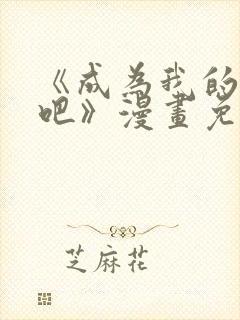 《成为我的
吧》漫畫免
芝麻花